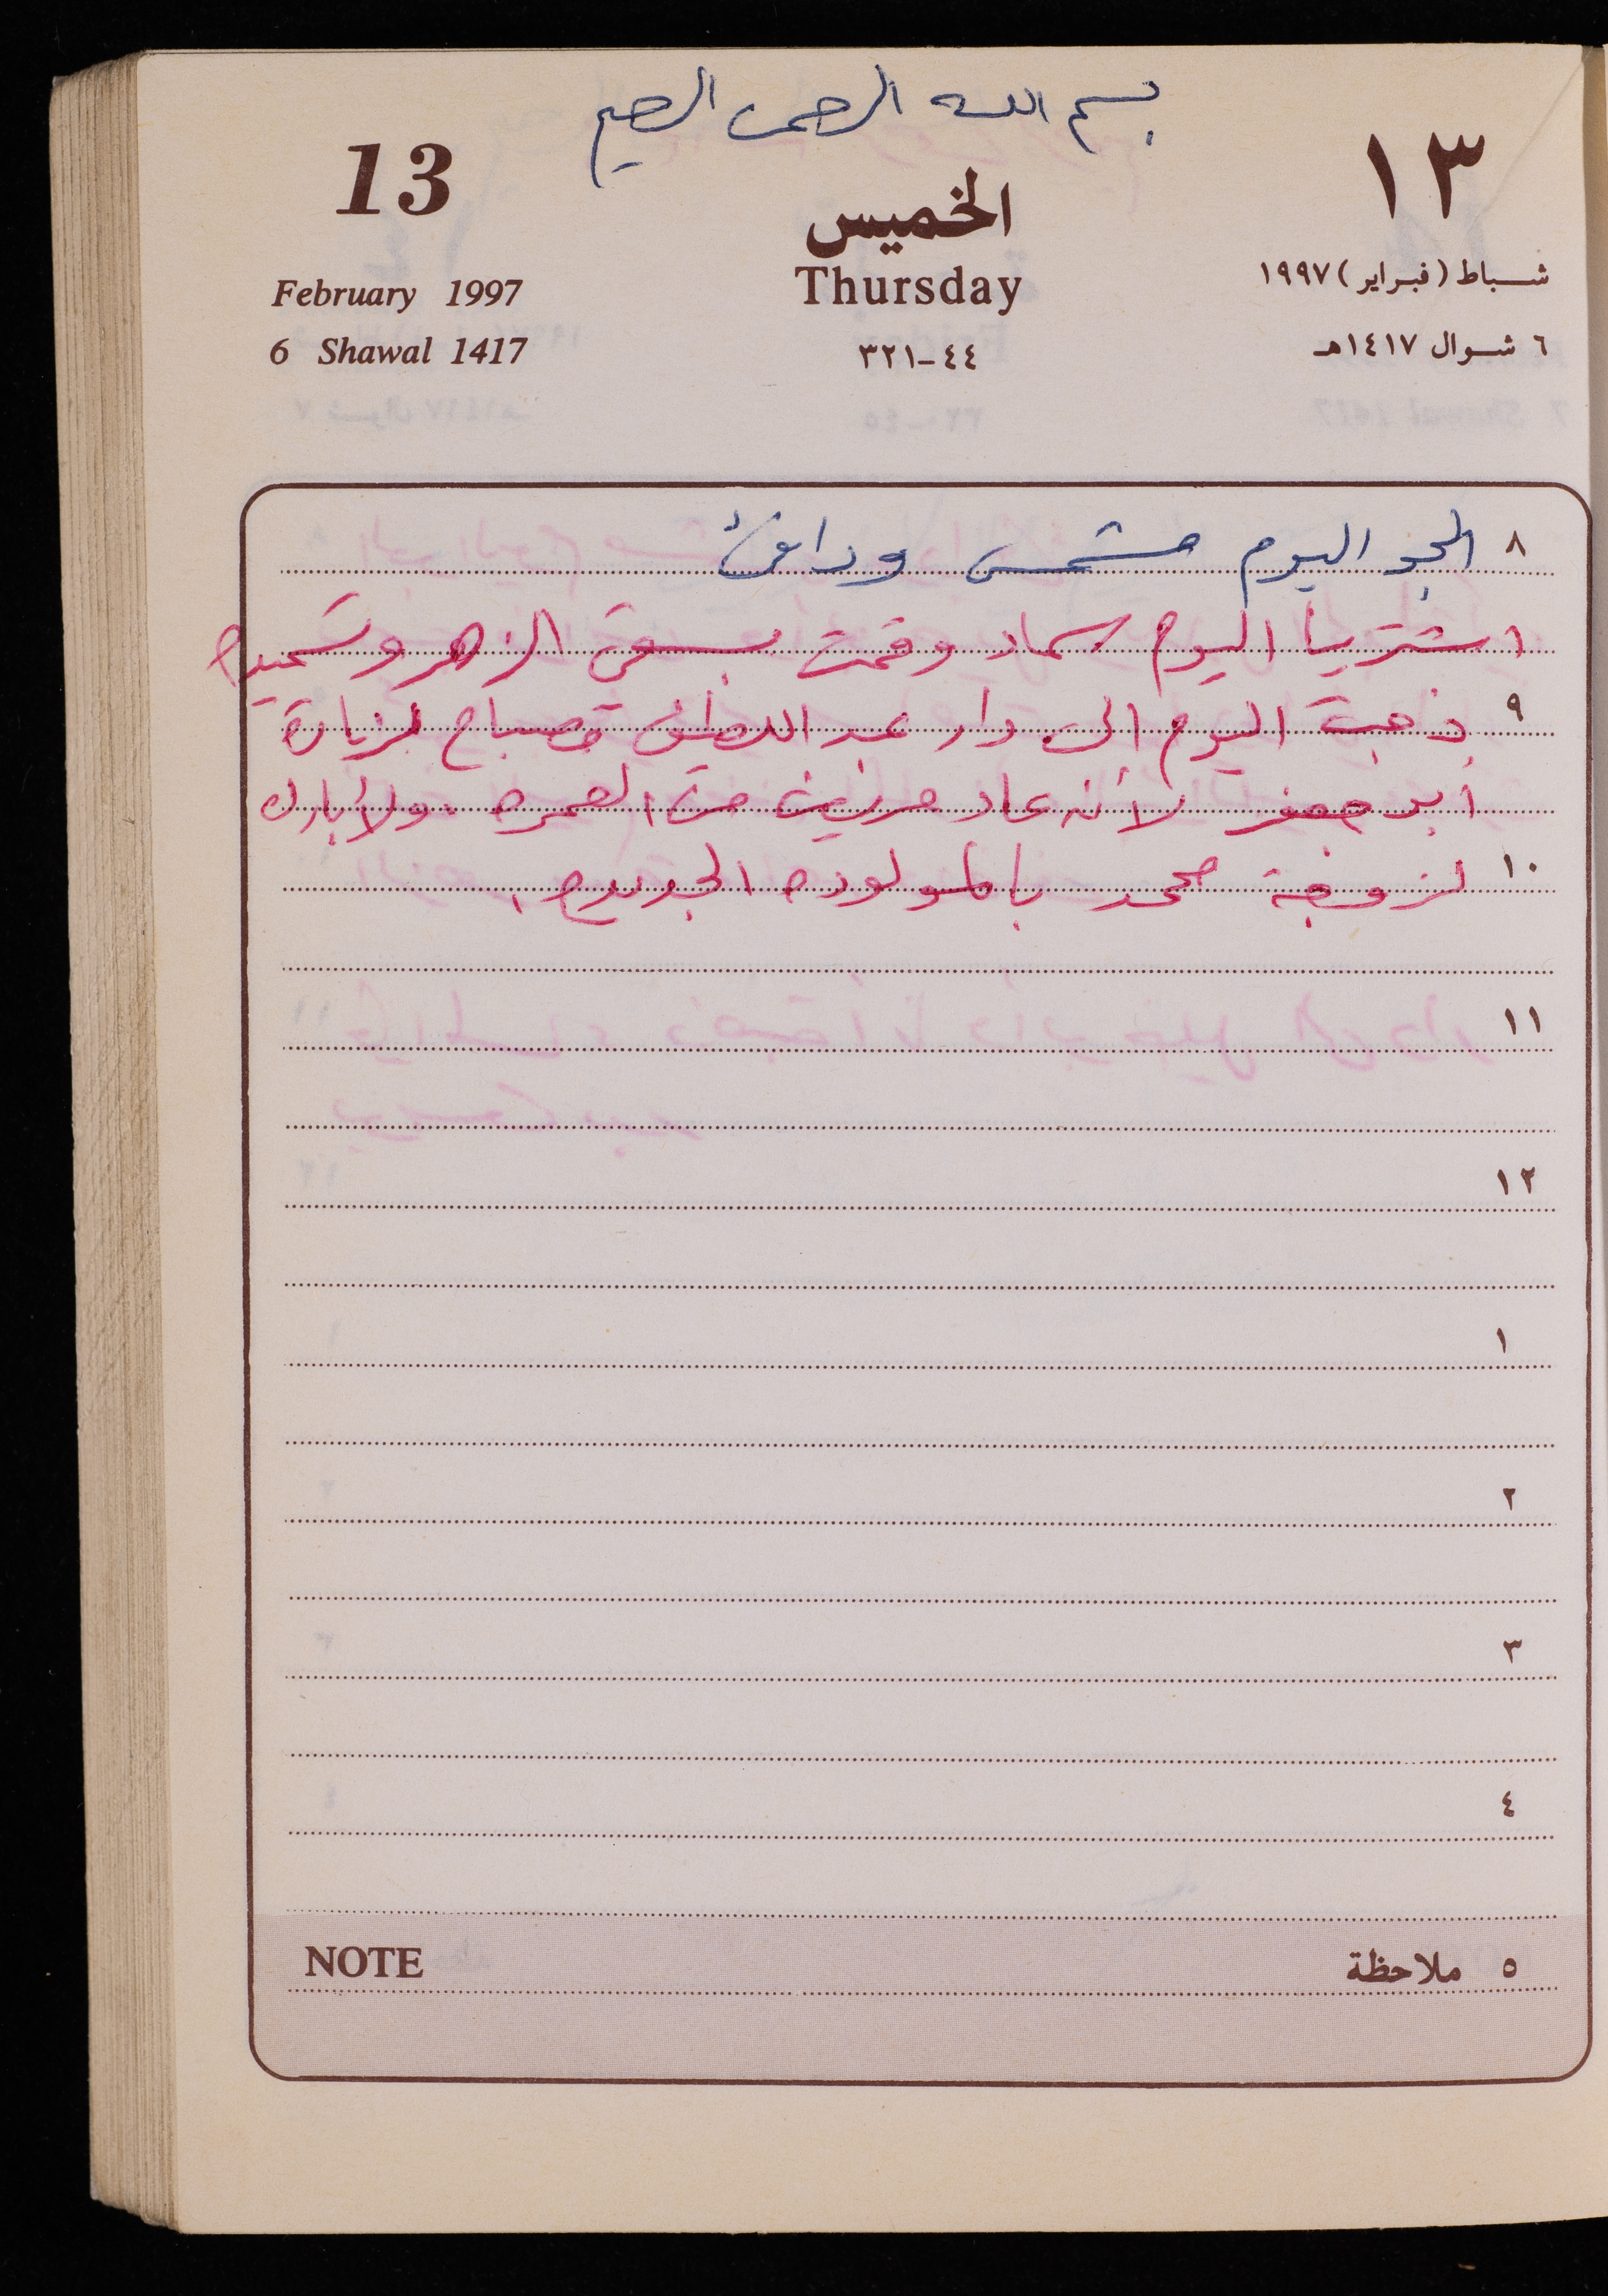 بسم الله الرحمن الرحيم
13
١٣
الخميس
February 1997
Thursday
شباط (فبراير) ١٩٩٧
6 Shawal 1417
٤٤-٣٢١
٦ شوال ١٤١٧هـ
٨ الجو اليوم مشمس ودافئ
اشترينا اليوم سماد وقمت بسقي الزهر وتسميده
٩ ذهبت اليوم إلى دار عبد اللطيف صباح لزيارة
أبو جعفر لأنه عاد من العمره ولأبارك
١٠ لزوجة محمد بالمولوده الجديده.
١١
١٢
١
٢
٣
٤
NOTE
٥ ملاحظة